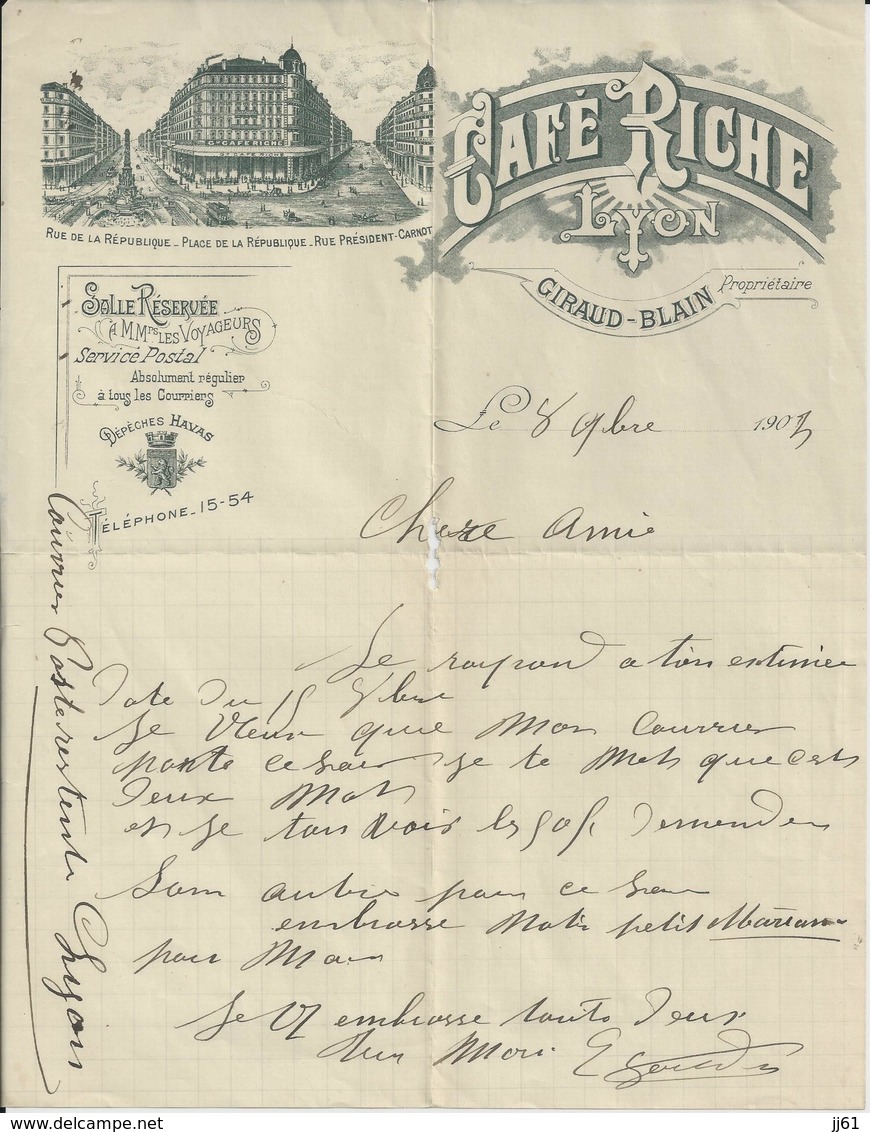 G-CAFÉ RICHE
Gd CAFÉ RICHE
RUE DE LA RÉPUBLIQUE _ PLACE DE LA RÉPUBLIQUE _ RUE PRÉSIDENT-CARNOT
CAFÉ RICHE
LYON
GIRAUD-BLAIN Propriétaire
SALLE RÉSERVÉE
A M.Mrs LES VOYAGEURS
Service Postal
Absolument régulier
à tous les Courriers
DÉPÊCHES HAVAS
TÉLÉPHONE_15-54
Le 8 9bre 1907
Chere Amie
Je raypond a ton estimée
date du 15 8bre
Je veux que mon Courrier
parte ce soir Je te mets que ces
deux mots
et je ten voir les 50f demender
Sam autre pour ce soir
embrasse notre petit
pour moi
Je V embrasse toute deux
ton Mari
Courrier Poste restente Lyon
delcampe.net
jj61